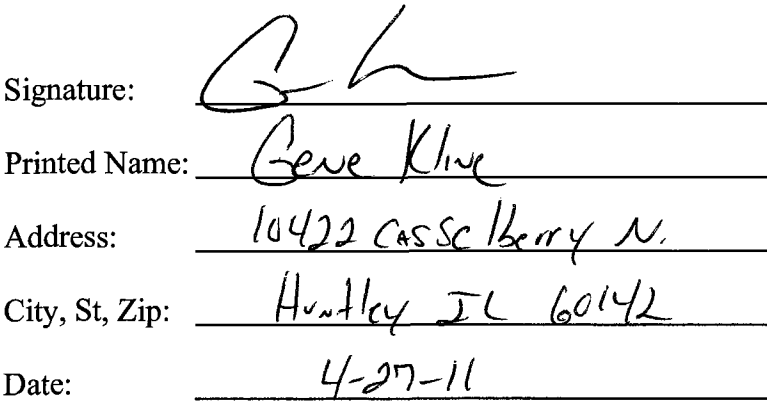 Signature:
Printed Name: Gene Kline
Address: 10422 Casselberry N.
City, St, Zip: Huntley IL 60142
Date: 4-27-11